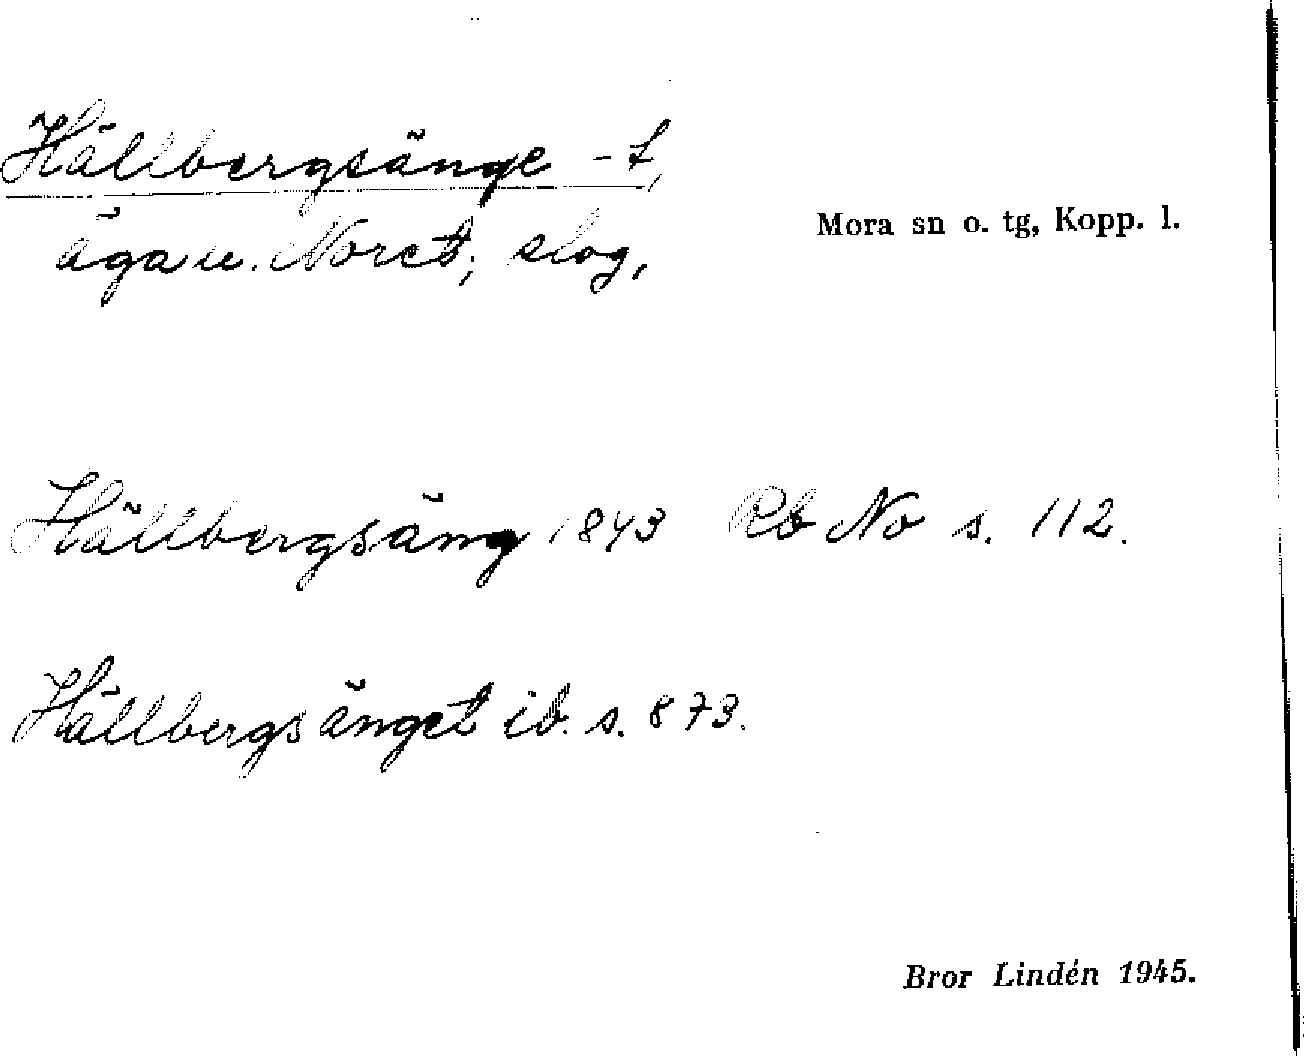 Hällbergsänge -t,
Mora sn o. tg, Kopp. l.
äga u. Noret, slog,
Hällbergsäng 1843 Rb No s. 112.
Hällbergsänget ib. s. 873.
Bror Lindén 1945.